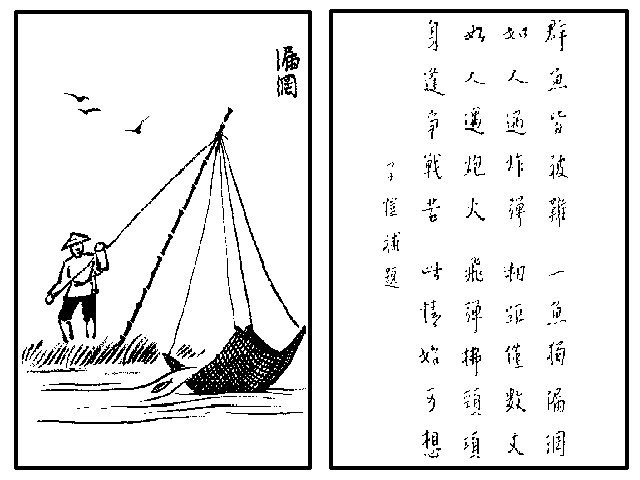 漏網
群魚皆被難 一魚獨漏網
如人遇炸彈 相距僅數丈
如人遇炮火 飛彈拂頭項
身逢爭戰苦 此情始可想
子愷補題